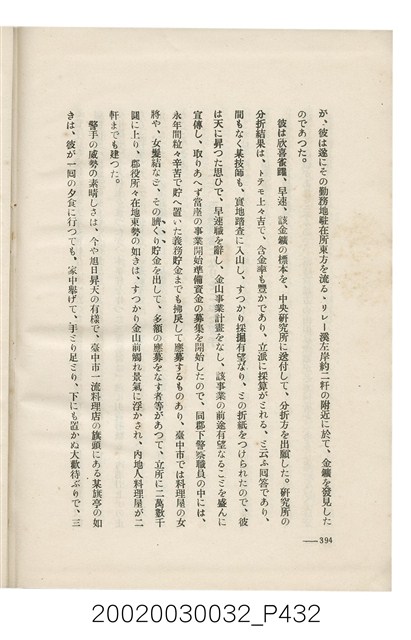 が、彼は遂にその勤務地駐在所東方を流る、リレー溪左岸約二粁の附近に於て、金鑛を發見した
のであつた。
彼は欣喜雀躍、早速、該金鑛の標本を、中央研究所に送付して、分折方を出願した。研究所の
分折結果は、トテモ上々吉で、含金率も豊かであり、立派に採算がとれる、と云ふ回答であり、
間もなく某技師も、實地踏査に入山し、すつかり採掘有望なり、との折紙をつけられたので、彼
は天に昇つた思ひで、早速職を辭し、金山事業計畫をなし、該事業の前途有望なることを盛んに
宣傳し、取りあへず當座の事業開始準備資金の募集を開始したので、同郡下警察職員の中には、
永年間粒々辛苦で貯へ置いた義務貯金までも拂戻して應募するものあり、臺中市では料理屋の女
將や、女髮結なぞ、その臍くり貯金を出して、多額の應募をなす者等があつて、立所に二萬數千
圓に上り、郡役所々在地東勢の如きは、すつかり金山前觸れ景氣に浮かされ、内地人料理屋が二
軒までも建つた。
警手の威勢の素晴しさは、今や旭日昇天の有様で、臺中市一流料理店の旗頭にある某旗亭の如
きは、彼が一囘の夕食に行つても、家中擧げて、手とり足とり、下にも置かぬ大歡待ぶりで、三
394
20020030032_P432